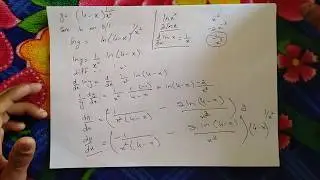 y = (4-x)^{1/x^2}
ln y = ln(4-x)^{1/x^2}
ln y = 1/x^2 ln(4-x)
d/dx ln y = d/dx 1/x^2 ln(4-x)
1/y dy/dx = 1/x^2 × (-1)/(4-x) + ln(4-x) -2/x^3
dy/dx = ( -1/x^2(4-x) - 2ln(4-x)/x^3 ) y
dy/dx = ( -1/x^2(4-x) - 2ln(4-x)/x^3 ) (4-x)^{1/x^2}
ln x^2
2 ln x
d/dx ln x = 1/x
x^{-2}
-2/x^3